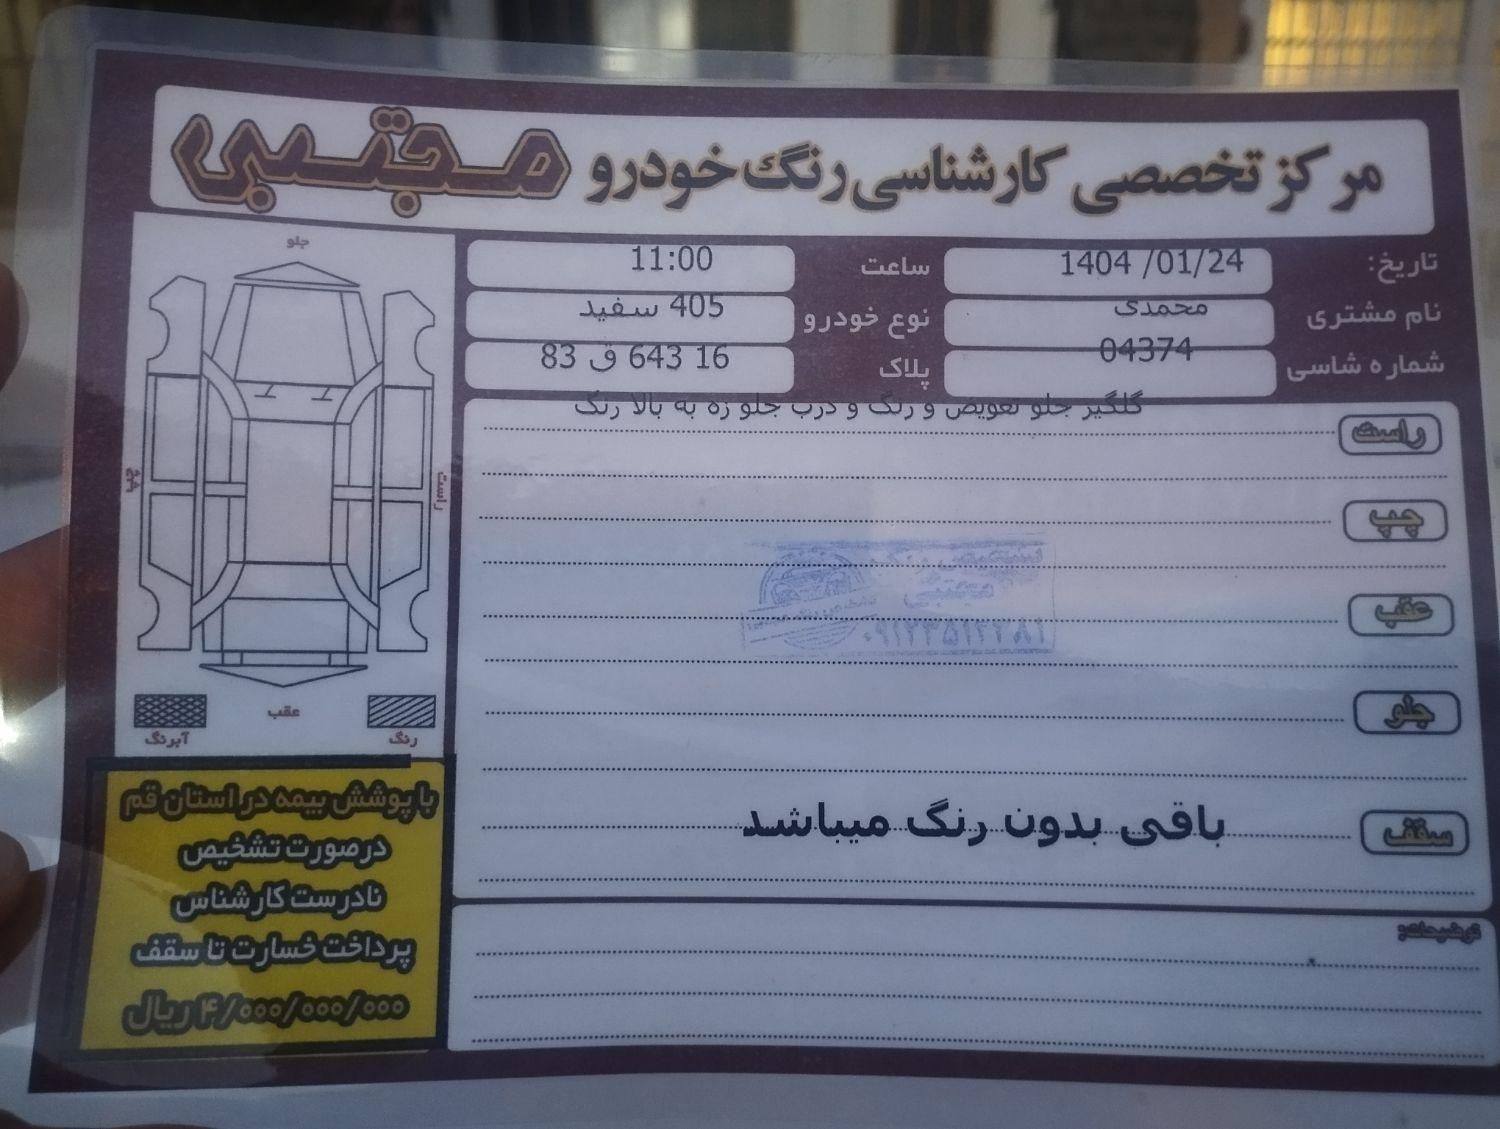 مرکز تخصصی کارشناسی رنگ خودرو مجتبی
تاریخ: 1404 /01/24 ساعت 11:00
نام مشتری محمدی نوع خودرو 405 سفید
شماره شاسی 04374 پلاک 16 643 ق 83
راست گلگیر جلو تعویض و رنگ و درب جلو زه به بالا رنگ
چپ
عقب
جلو
سقف باقی بدون رنگ میباشد
توضیحات:
تشخیص رنگ
مجتبی
جلو
چپ
راست
عقب
آبرنگ
رنگ
با پوشش بیمه در استان قم
در صورت تشخیص
نادرست کارشناس
پرداخت خسارت تا سقف
۴/۰۰۰/۰۰۰/۰۰۰ ریال